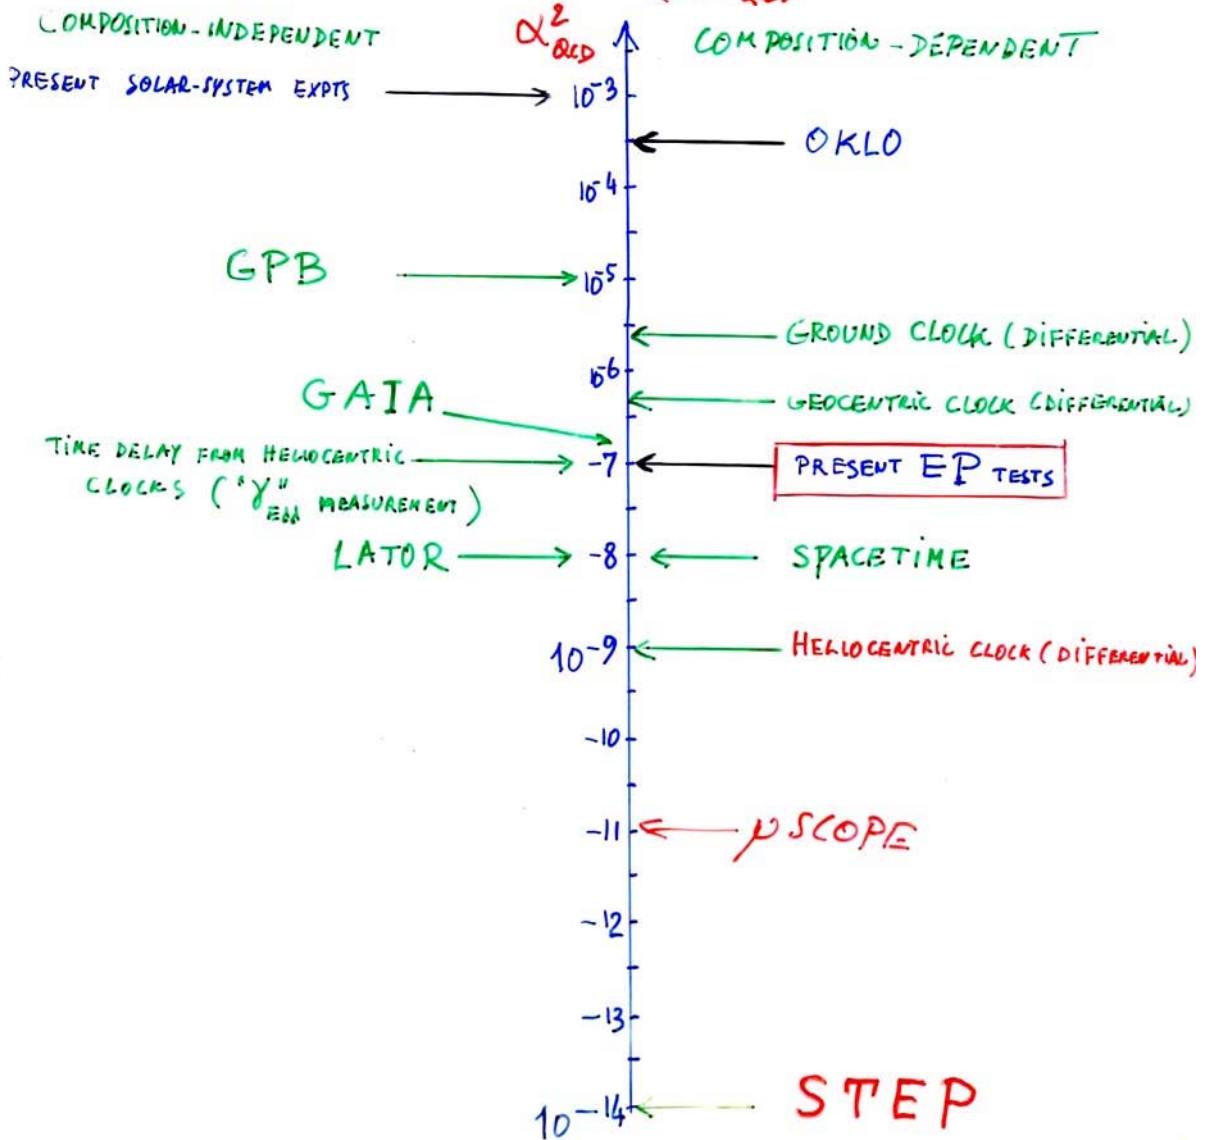 COMPOSITION-INDEPENDENT
α²QCD
COMPOSITION-DEPENDENT
PRESENT SOLAR-SYSTEM EXPTS
10-3
OKLO
10-4
GPB
10-5
GROUND CLOCK (DIFFERENTIAL)
10-6
GAIA
GEOCENTRIC CLOCK (DIFFERENTIAL)
TIME DELAY FROM HELIOCENTRIC
CLOCKS ("γ"Edd MEASUREMENT)
-7
PRESENT EP TESTS
LATOR
-8
SPACETIME
10-9
HELIOCENTRIC CLOCK (DIFFERENTIAL)
-10
-11
μSCOPE
-12
-13
10-14
STEP